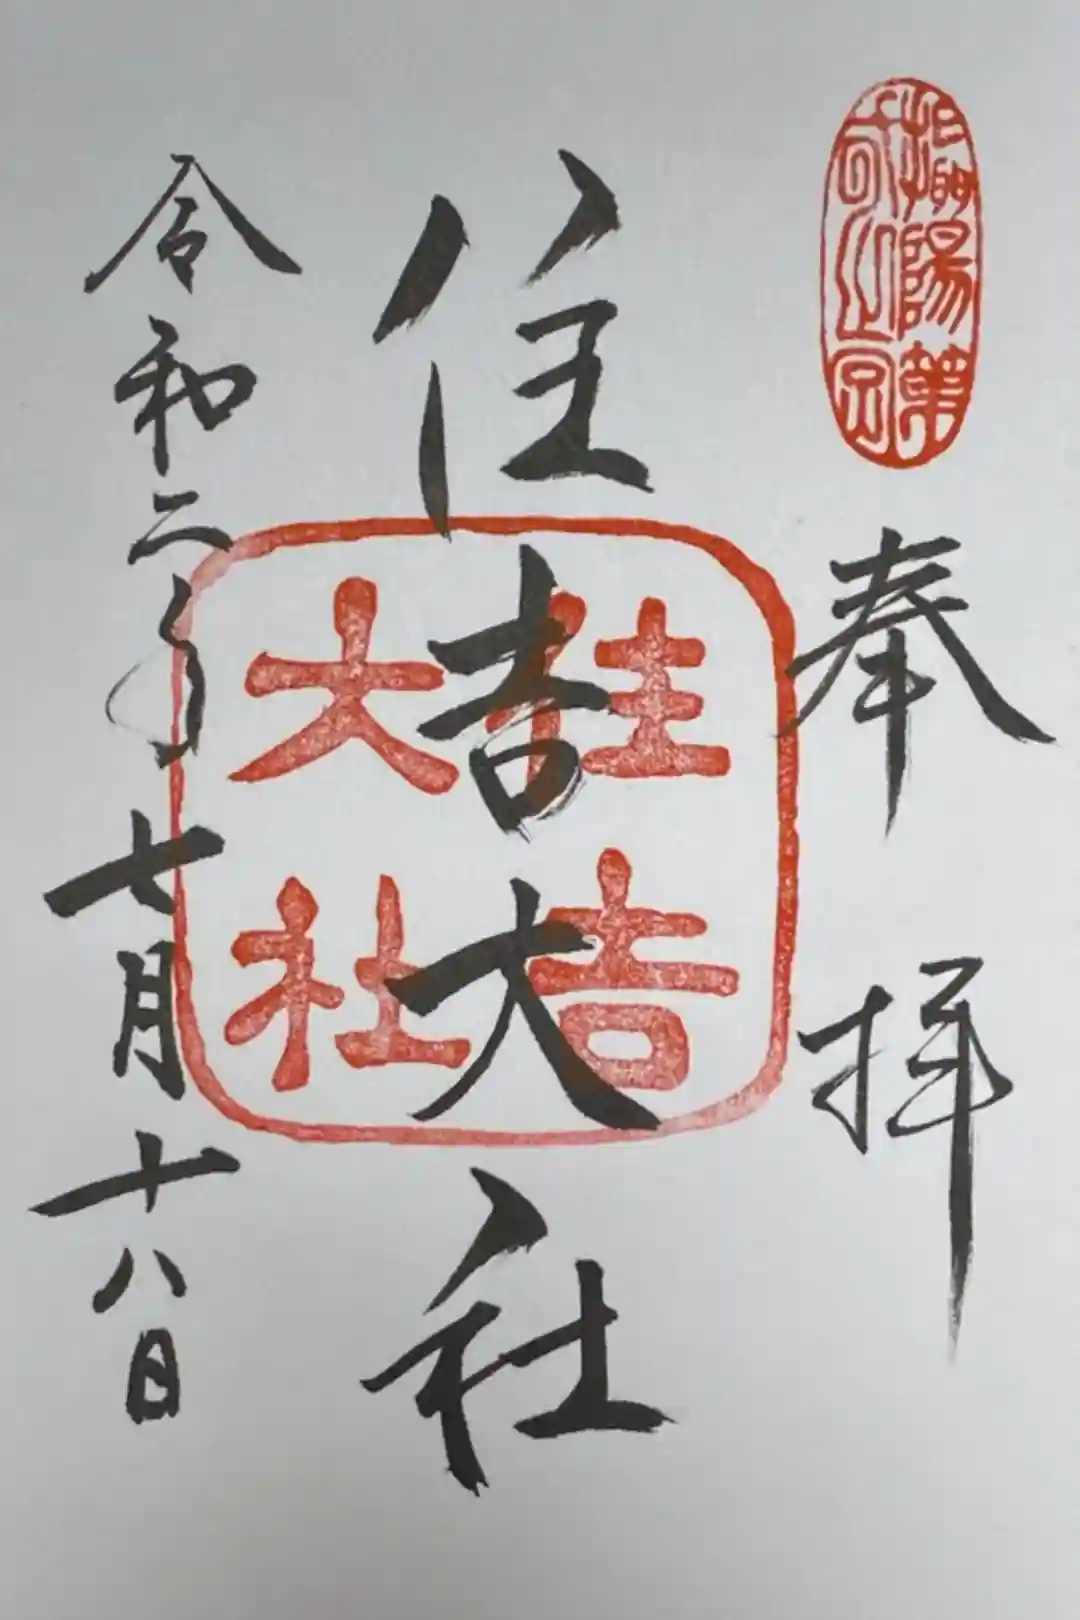 摂陽第
奉拝
住吉大社
住吉
大社
令和二年七月十八日